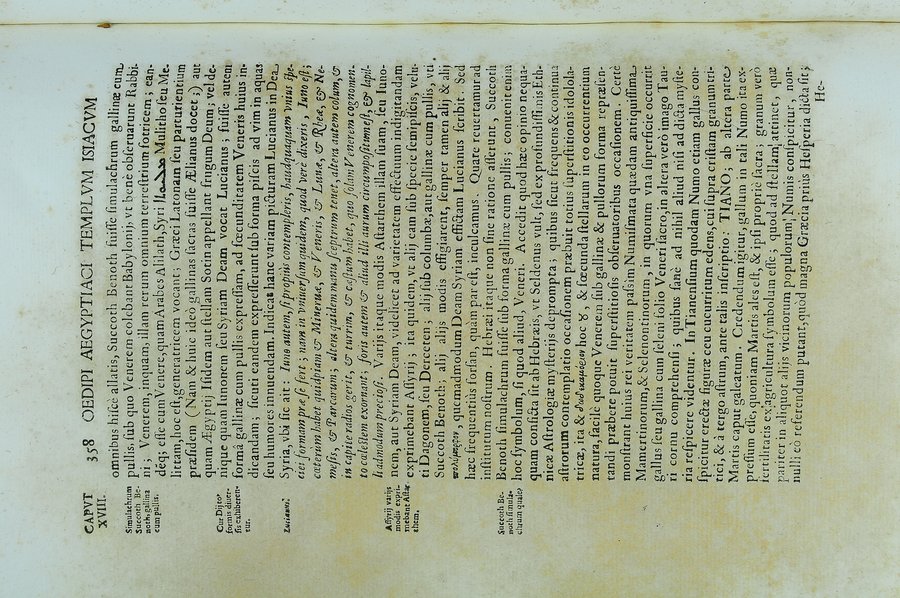 CAPVT XVIII.
358 OEDIPI AEGYPTIACI TEMPLVM ISIACVM
Simulachrum Succoth Benoth gallina cum pullis.
omnibus hisce allatis, Succoth Benoth fuisse simulachrum gallinæ cum
pullis, sub quo Venerem colebant Babylonij, vt benè obseruarunt Rabbini
ni; Venerem, inquam, illam rerum omnium terrestrium fotricem; eandéq;
esse cum Venere, quam Arabes Alilath, Syri Mulitho seu Melittam,
hoc est, generatricem vocant; Græci Latonam seu parturientium
præsidem (Nam & huic ideò gallinas sacras fuisse Ælianus docet;) aut
Cur Dij tot formis diuersis exhiberentur.
quam Ægyptij Isidem aut stellam Sotin appellant frugum Deum; vel denique
quam Iunonem seu Syriam Deam vocat Lucianus; fuisse autem
forma gallinæ cum pullis expressam, ad fœcunditatem Veneris huius indicandam;
sicuti eandem expresserunt sub forma piscis ad vim in aquas
seu humores innuendam. Indicat hanc variam picturam Lucianus in Dea
Lucianus.
Syria, vbi sic ait: Iuno autem, si propiùs contempleris, haudquaquam vnius speciei
formam præ se fert; nam in vniuersum quidem, quod verè dixeris, Iuno est;
cæterùm habet quidpiam & Mineruæ, & Veneris, & Lunæ, & Rheæ, & Nemesis,
& Parcarum; altera quidem manu sceptrum tenet, altera autem colum, &
in capite radios gerit, & turrim, & cestum habet, quo solum Venerem cognomento
cælestem exornant, foris autem & aliud illi aurum circumpositum est, & lapilli
admodum preciosi. Varijs itaque modis Astarthem illam suam, seu Iunonem,
aut Syriam Deam, videlicet ad varietatem effectuum indigitandam
Assyrij varijs modis exprimebant Astarthem.
exprimebant Assyrij; ita quidem, vt alij eam sub specie semipiscis, veluti
Dagonem, seu Derceten; alij sub columbæ, aut gallinæ cum pullis, vti
Succoth Benoth; alij alijs modis effigiarent, semper tamen alij & alij
quemadmodum Deam Syriam effictam Lucianus scribit. Sed
hæc frequentiùs forsan, quam par est, inculcamus. Quare reuertamur ad
institutum nostrum. Hebræi itaque non sine ratione asserunt, Succoth
Succoth Benoth simulachrum quale?
Benoth fuisse sub forma gallinæ cum pullis; conuenit enim
hoc symbolum, si quod aliud, Veneri. Accedit quod hæc opinio nequaquam
conficta sit ab Hebræis, vt Seldenus vult, sed ex profundissimis Ethnicæ
Astrologiæ mysterijs deprompta; quibus sicut frequens & continua
astrorum contemplatio occasionem præbuit totius superstitionis idololatricæ,
ita & hoc ♉, & fœcunda stellarum in eo occurrentium
natura, facilè quoque Venerem sub gallinæ & pullorum forma repræsentandi
præbere potuit superstitiosis obseruatoribus occasionem. Certè
monstrant huius rei veritatem passim Numismata quædam antiquissima
Mamertinorum, & Selenontinorum, in quorum vna superficie occurrit
gallus seu gallina cum selino folio Veneri sacro, in altera verò imago Tauri
cornu comprehensi; quibus sanè ad nihil aliud nisi ad dicta mysteria
respicere videntur. In Tianensium quodam Numo etiam gallus conspicitur
erectæ figuræ ceu cucurritum edens, cui supra cristam granum tritici,
& à tergo astrum, ante talis inscriptio: TIANO; ab altera parte
Martis caput galeatum. Credendum igitur, gallum in tali Numo ita expressum
esse, quoniam Martis ales est, & ipsi propriè sacra; granum verò
fertilitatis ex agricultura symbolum esse, quod ad stellam attinet, quæ
pariter in aliquot alijs vicinorum populorum Numis conspicitur, nonnulli
eò referendum putant, quòd magna Græcia priùs Hesperia dicta sit;
He-